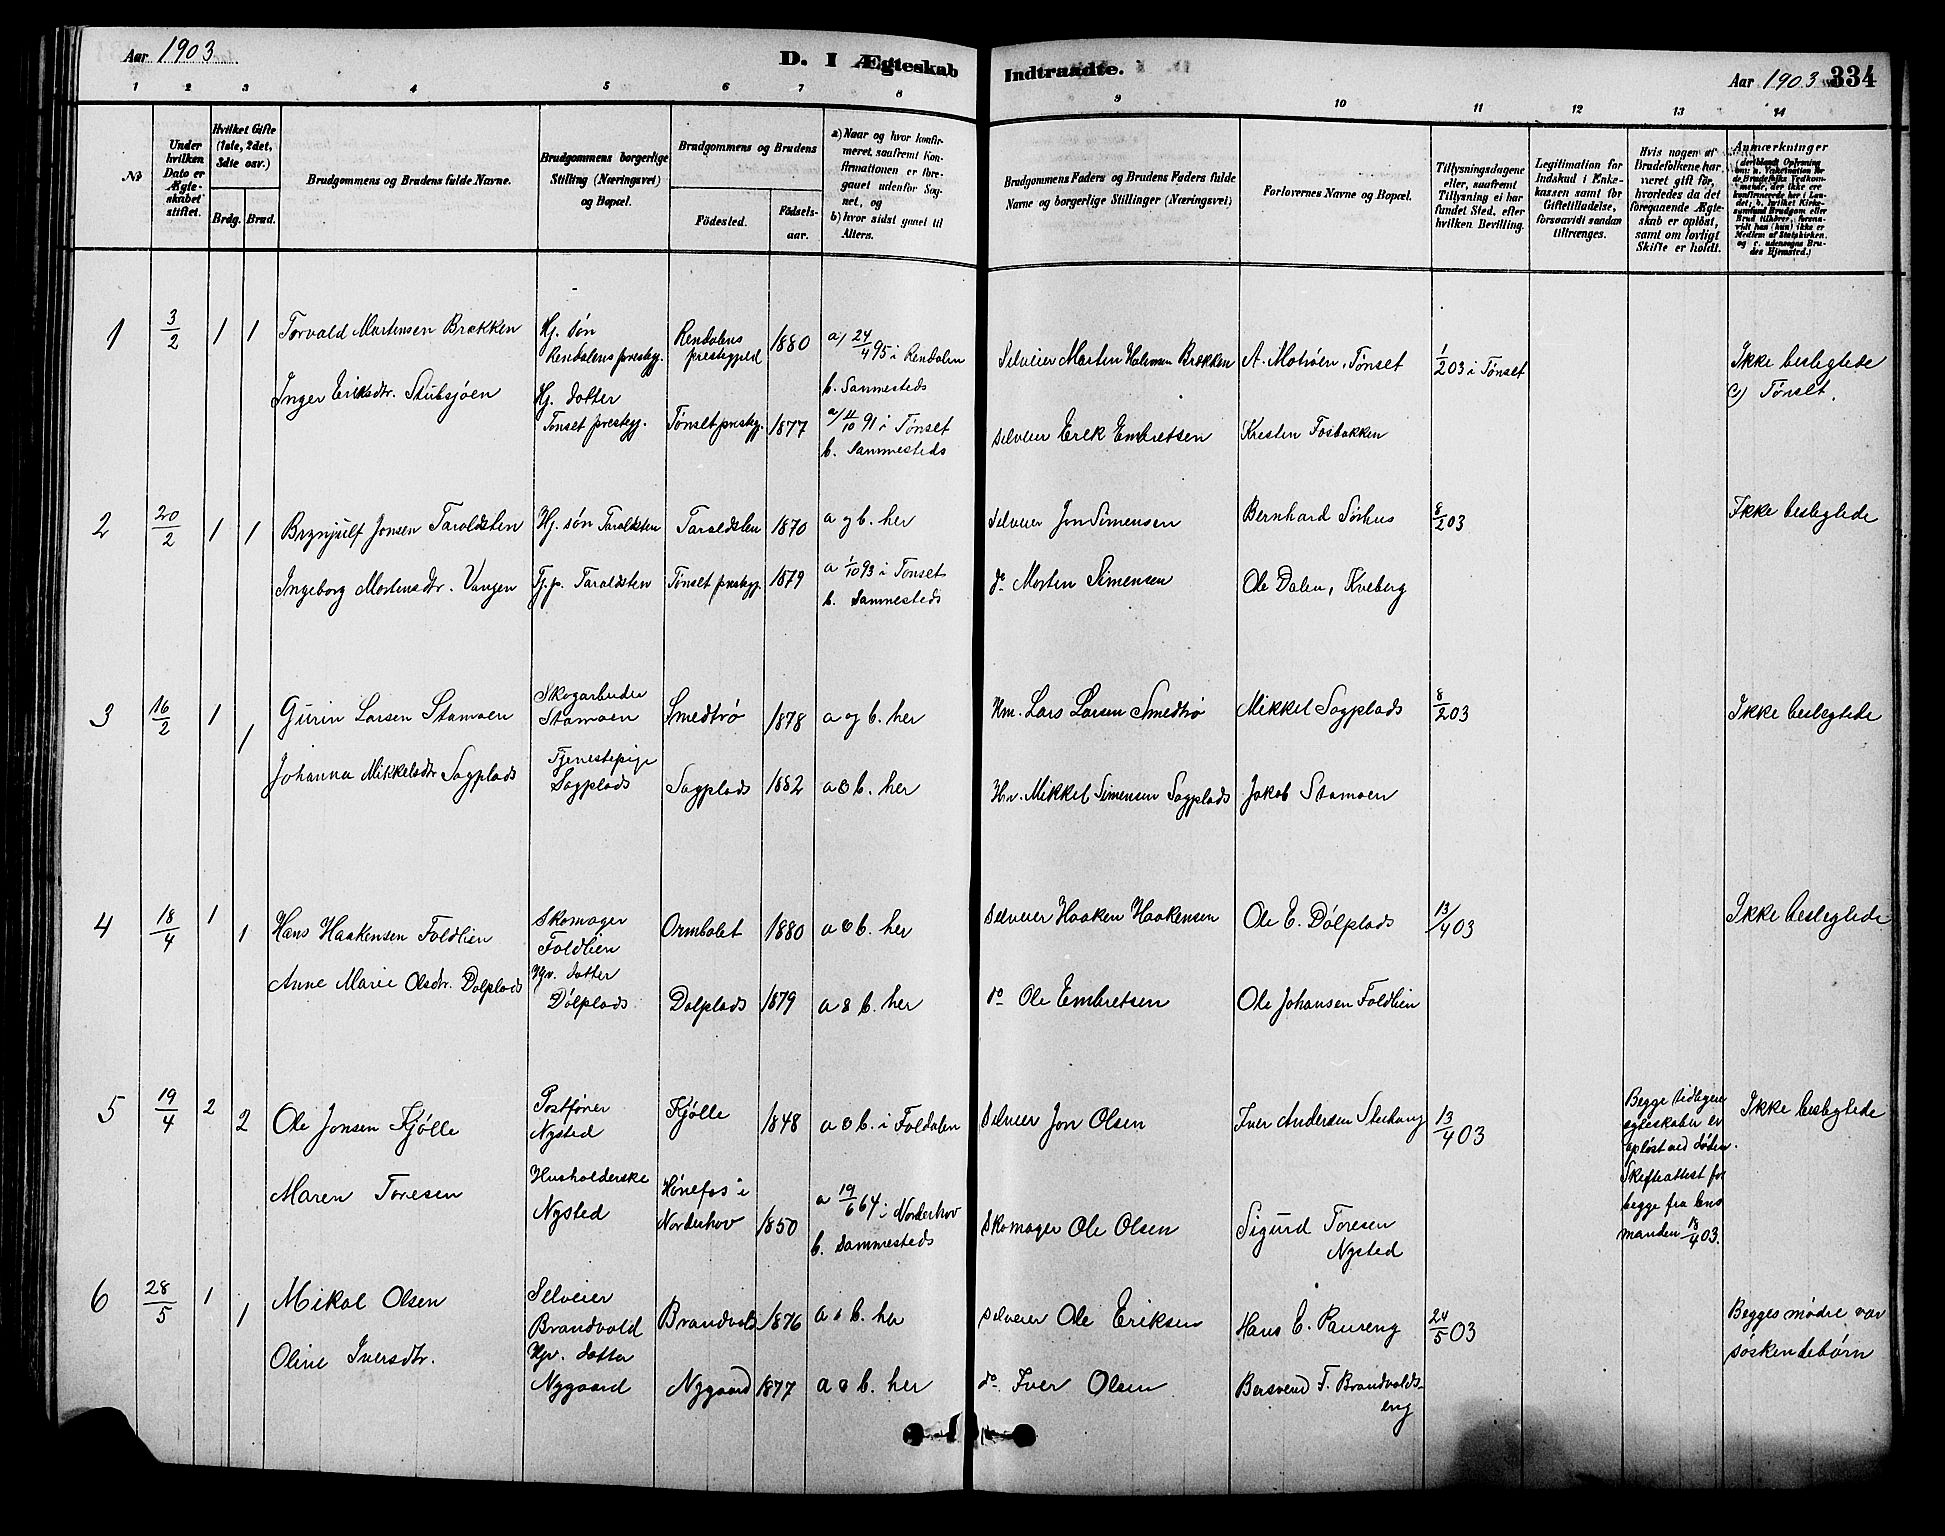 Aar 1903
D. I Ægteskab
Indtraadte.
Aar 1903
334
1 2 3 4 5 6 7 8 9 10 11 12 13 14
No
Under hvilken Dato er Ægteskabet stiftet.
Hvilket Gifte (1ste, 2det, 3die osv.)
Brdg. Brud.
Brudgommens og Brudens fulde Navne.
Brudgommens borgerlige Stilling (Næringsvei) og Bopæl.
Brudgommens og Brudens
Födested.
Födselsaar.
a) Naar og hvor konfirmeret, saafremt Konfirmationen er foregaaet udenfor Sognet, og
b) hvor sidst gaaet til Alters.
Brudgommens Faders og Brudens Faders fulde Navne og borgerlige Stillinger (Næringsvei)
Forlovernes Navne og Bopæl.
Tillysningsdagene eller, saafremt Tillysning ei har fundet Sted, efter hvilken Bevilling.
Legitimation for Indskud i Enkekassen samt for Giftetilladelse, forsaavidt sandan tiltrænges.
Hvis nogen af Brudefolkene har været gift för, hvorledes da det foregaaende Ægteskab er oplöst, samt om lovligt Skifte er holdt.
Anmærkninger
1 3/2 1 1
Torvald Mortensen Brækken
Hj. søn
Rendalens prestegj.
Rendalens prestegjeld
1880
a) 24/4 95 i Rendalen
b. Sammesteds
Selveier Morten Halvorsen Brækken
A. Motrøen, Tønset
1/2 03 i Tønset
Ikke beslegtede
c) Tønset.
Inger Eriksdtr. Stubsjøen
Hj. dotter
Tønset prestegj.
Tønset prestegj.
1877
a) 4/10 91 i Tønset
b. Sammesteds
Selveier Erik Embretsen
Kristen Fosbakken
2 20/2 1 1
Brynjulf Jonsen Taroldsten
Hj. søn Taroldsten
Taraldsten
1870
a og b. her
Selveier Jon Simensen
Bernhard Sørhus
8/2 03
Ikke beslegtede
Ingeborg Mortensdtr. Vangen
Tj.p. Taraldsten
Tønset prestegj.
1879
a 1/10 93 i Tønset
b. Sammesteds
do Morten Simensen
Ole Dalen, Kveberg
3 16/2 1 1
Gurin Larsen Stamoen
Skogarbeider
Stamoen
Smedtrø
1878
a og b. her
Hm. Lars Larsen Smedtrø
Mikkel Sagplads
8/2 03
Ikke beslegtede
Johanna Mikkelsdtr Sagplads
Tjenestepige
Sagplads
Sagplads
1882
a & b. her
Hm. Mikkel Simensen Sagplads
Jakob Stamoen
4 18/4 1 1
Hans Haakensen Foldlien
Skomager
Foldlien
Ormbolet
1880
a & b. her
Selveier Haaken Haakensen
Ole E. Dólplads
13/4 03
Ikke beslegtede
Anne Marie Olsdtr. Dolplads
Hjv. dotter
Dólplads
Dolplads
1879
a & b. her
do Ole Embretsen
Ole Johansen Foldlien
5 19/4 2 2
Ole Jonsen Kjølle
Postfører
Nysted
Kjølle
1848
a & b. i Foldalen
Selveier Jon Olsen
Iver Andersen Steihaug
13/4 03
Begge tidligere
egteskaber er
opløst ved døden.
Skifteattest for
begge fra lens
manden 18/4 03.
Ikke beslegtede
Maren Toresen
Husholderske
Nysted
Hønefos i
Norderhov
1850
a 19/6 64 i Norderhov
b. Sammesteds
Skomager Ole Olsen
Sigurd Toresen
Nysted
6 28/5 1 1
Mikal Olsen
Selveier
Brandvold
Brandvold
1876
a & b. her
Selveier Ole Eriksen
Hans E. Rauseng
24/5 03
Begges mødre var
søskendebørn
Oline Iversdtr.
Hjv. dotter
Nygaard
Nygaard
1877
a & b. her
do. Iver Olsen
Bersvend T. Brandvolds-
eng